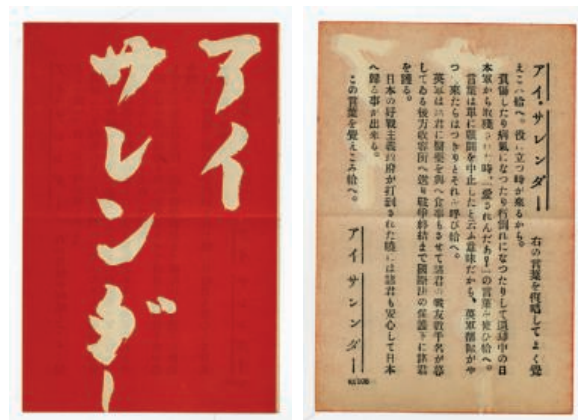 アイ
サレンダー
アイ・サレンダー 右の言葉を復唱してよく覺
え 給へ。役に立つ時が來るから。
負傷したり病氣になつたり行倒れになつたりして退却中の日
本軍から取殘された時、「愛されんだあ!」の言葉を使ひ給へ。
言葉は單に戰鬪を中止したと云ふ意味だから、英軍部隊がや
つ 來たらはつきりとそれを呼び給へ。
英軍は諸君に醫藥を與へ食事もさせて諸君の戰友數千名が暮
してゐる後方收容所へ送り戰爭終結まで國際法の保護下に諸君
を護る。
日本の好戰主義政府が打倒された曉には諸君も安心して日本
へ歸る事が出來る。
この言葉を覺えこみ給へ。
アイ サレンダー